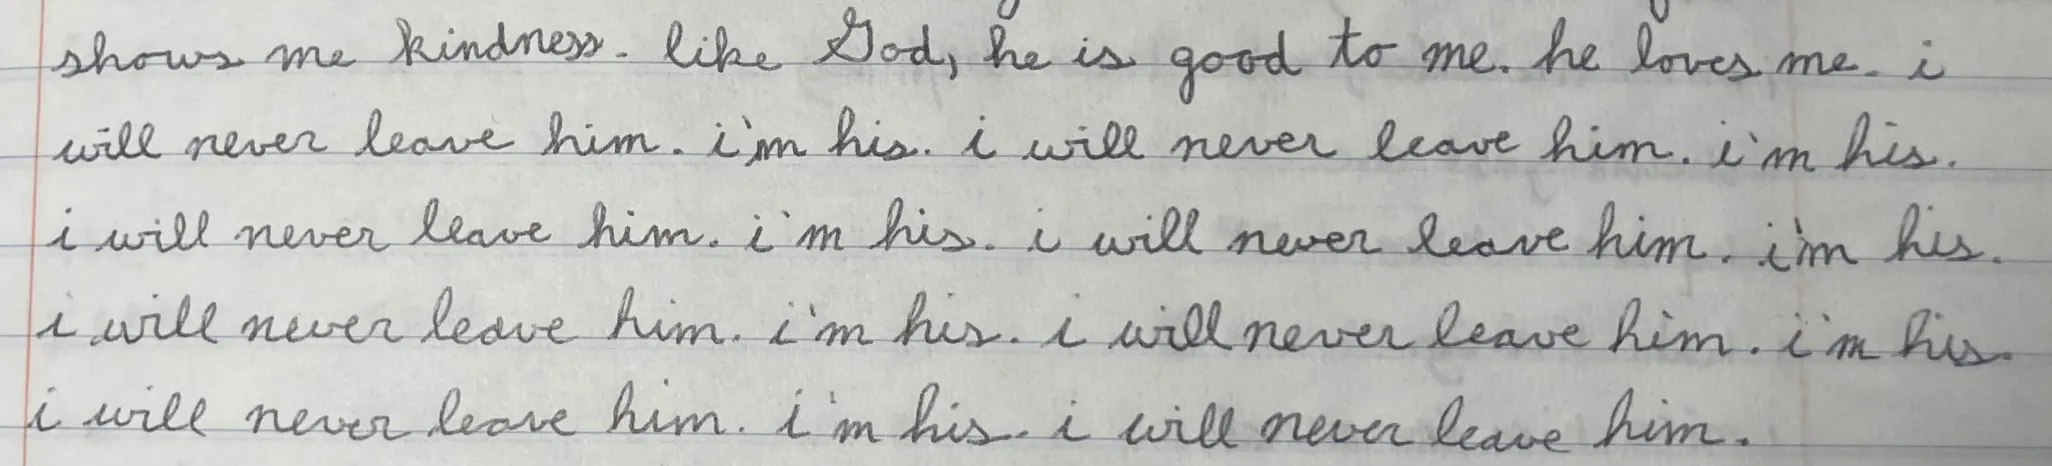 shows me kindness. like God, he is good to me. he loves me. i
will never leave him. i'm his. i will never leave him. i'm his.
i will never leave him. i'm his. i will never leave him. i'm his.
i will never leave him. i'm his. i will never leave him. i'm his.
i will never leave him. i'm his. i will never leave him.